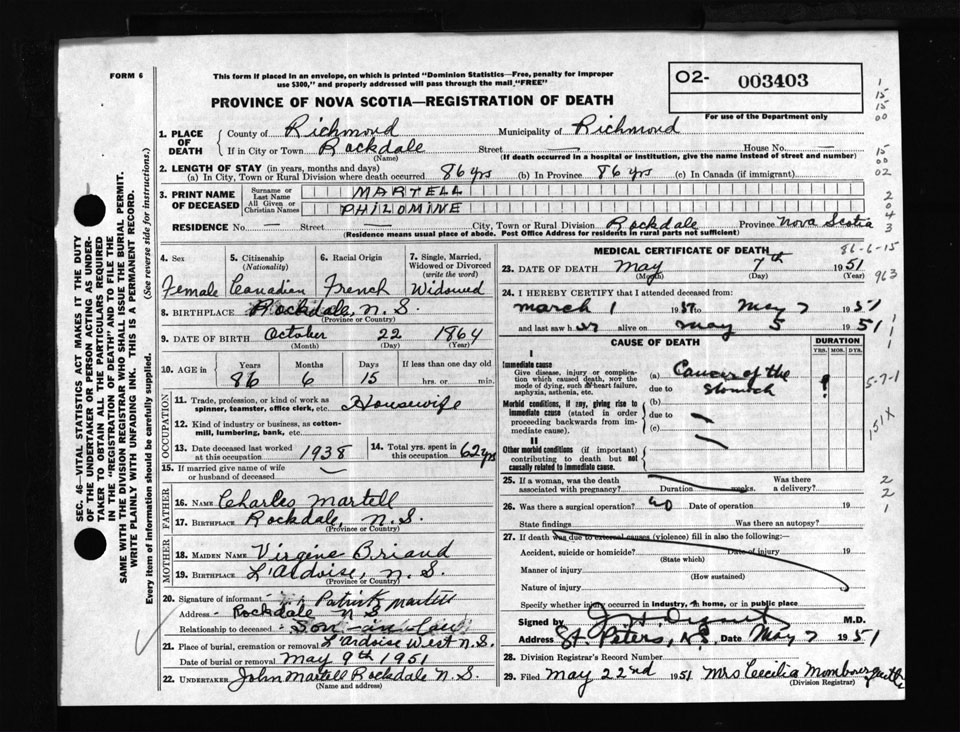 FORM 6
This form if placed in an envelope, on which is printed "Dominion Statistics—Free, penalty for improper
use $300," and properly addressed will pass through the mail "FREE"
PROVINCE OF NOVA SCOTIA—REGISTRATION OF DEATH
O2- 003403
For use of the Department only
1. PLACE OF DEATH
County of Richmond Municipality of Richmond
If in City or Town Rockdale Street — House No. —
(Name) (If death occurred in a hospital or institution, give the name instead of street and number)
2. LENGTH OF STAY (in years, months and days)
(a) In City, Town or Rural Division where death occurred 86 yrs (b) In Province 86 yrs (c) In Canada (if immigrant)
3. PRINT NAME OF DECEASED
Surname or Last Name MARTELL
All Given or Christian Names PHILOMINE
RESIDENCE No. — Street — City, Town or Rural Division Rockdale Province Nova Scotia
(Residence means usual place of abode. Post Office Address for residents in rural parts not sufficient)
4. Sex
Female
5. Citizenship
(Nationality)
Canadian
6. Racial Origin
French
7. Single, Married,
Widowed or Divorced
(write the word)
Widowed
8. BIRTHPLACE Rockdale, N.S.
(Province or Country)
9. DATE OF BIRTH October 22 1864
(Month) (Day) (Year)
10. AGE in Years Months Days If less than one day old
86 6 15 hrs. or min.
OCCUPATION
11. Trade, profession, or kind of work as
spinner, teamster, office clerk, etc. Housewife
12. Kind of industry or business, as cotton-
mill, lumbering, bank, etc.
13. Date deceased last worked
at this occupation 1938
14. Total yrs. spent in
this occupation 62 yrs
15. If married give name of wife
or husband of deceased
FATHER
16. NAME Charles Martell
17. BIRTHPLACE Rockdale, N.S.
(Province or Country)
MOTHER
18. MAIDEN NAME Virgine Briand
19. BIRTHPLACE L'Ardoise, N.S.
(Province or Country)
20. Signature of informant Patrick Martell
Address Rockdale N S
Relationship to deceased Son-in-law
21. Place of burial, cremation or removal L'ardoise West N.S.
Date of burial or removal May 9th 1951
22. UNDERTAKER John Martell Rockdale N.S.
(Name and address)
MEDICAL CERTIFICATE OF DEATH
23. DATE OF DEATH May 7th 1951
(Month) (Day) (Year)
24. I HEREBY CERTIFY that I attended deceased from:
March 1 19 to May 7 1951
and last saw h er alive on May 5 1951
CAUSE OF DEATH
DURATION
YRS. MOS. DYS.
I
Immediate cause
Give disease, injury or complica-
tion which caused death, not the
mode of dying, such as heart failure,
asphyxia, asthenia, etc.
(a) Cancer of the
due to stomach ?
Morbid conditions, if any, giving rise to
immediate cause (stated in order
proceeding backwards from im-
mediate cause).
(b)
due to
(c)
II
Other morbid conditions (if important)
contributing to death but not
causally related to immediate cause.
25. If a woman, was the death
associated with pregnancy? Duration weeks. Was there
a delivery?
26. Was there a surgical operation? no Date of operation 19
State findings Was there an autopsy?
27. If death was due to external causes (violence) fill in also the following:—
Accident, suicide or homicide? Date of injury 19
(State which)
Manner of injury
(How sustained)
Nature of injury
Specify whether injury occurred in industry, in home, or in public place
Signed by M.D.
Address St. Peters, N.S. Date May 7 1951
28. Division Registrar's Record Number
29. Filed May 22nd 1951 Mrs Cecilia Mombourquette
(Division Registrar)
SEC. 46—VITAL STATISTICS ACT MAKES IT THE DUTY
OF THE UNDERTAKER OR PERSON ACTING AS UNDER-
TAKER TO OBTAIN ALL THE PARTICULARS REQUIRED
IN THE "REGISTRATION OF DEATH" AND TO FILE THE
SAME WITH THE DIVISION REGISTRAR WHO SHALL ISSUE THE BURIAL PERMIT.
WRITE PLAINLY WITH UNFADING INK. THIS IS A PERMANENT RECORD.
Every item of information should be carefully supplied. (See reverse side for instructions.)
1
15
15
00
15
00
02
2
0
4
3
86-6-15
963
1
1
1
5-7-1
151X
2
2
1